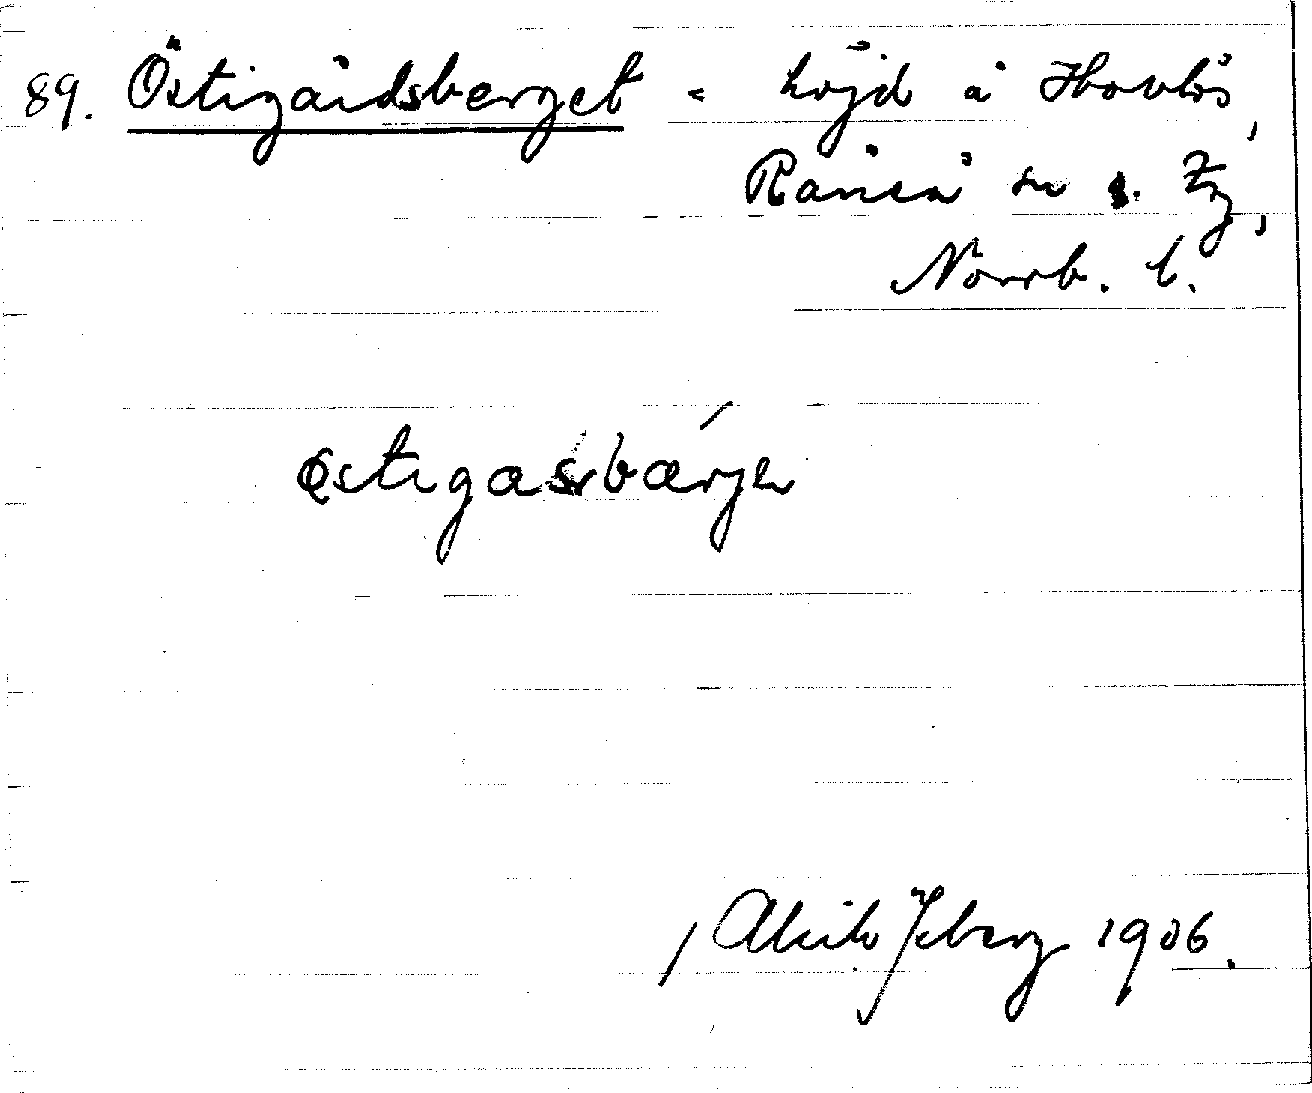 89. Östigårdsberget = höjd å Hovlös,
Råneå sn s. Fg,
Norrb. l.
østigasbærjen
/ Alik Isberg 1906.